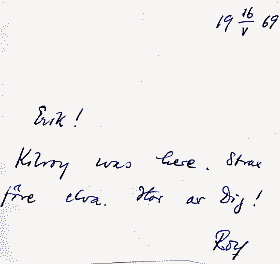 19 16/V 69
Erik!
Kilroy was here. Strax
före elva. Hör av Dig!
Roy